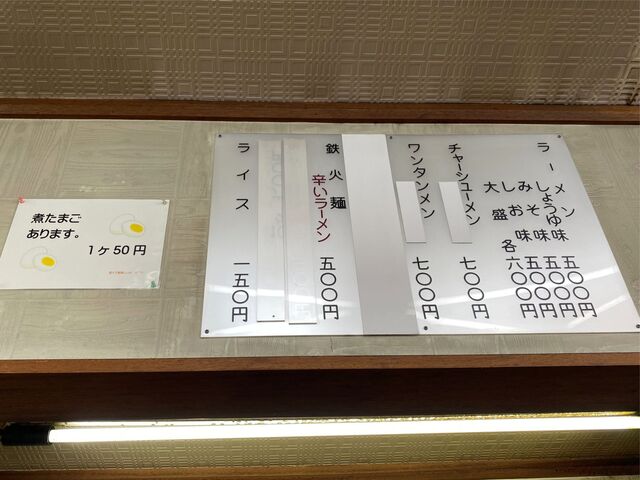 ラーメン
しょうゆ味 五〇〇円
みそ味 五〇〇円
しお味 五〇〇円
大盛 各六〇〇円
チャーシューメン 七〇〇円
ワンタンメン 七〇〇円
鉄火麺 五〇〇円
辛いラーメン
ライス 一五〇円
煮たまご
あります。
1ケ50円